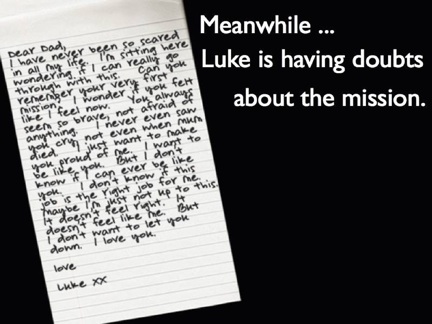 Meanwhile ...
Luke is having doubts
about the mission.
Dear Dad,
I have never been so scared
in all my life. I'm sitting here
wondering if I can really go
through with this. Can you
remember your very first
mission. I wonder if you felt
like I feel now. You always
seem so brave, not afraid of
anything. I never even saw
you cry, not even when mum
died. I just want to make
you proud of me. I want to
be like you. But I don't
know if I can ever be like
you. I don't know if this
job is the right job for me.
Maybe I'm just not up to this.
It doesn't feel right. It
doesn't feel like me. But
I don't want to let you
down. I love you.
love
Luke xx